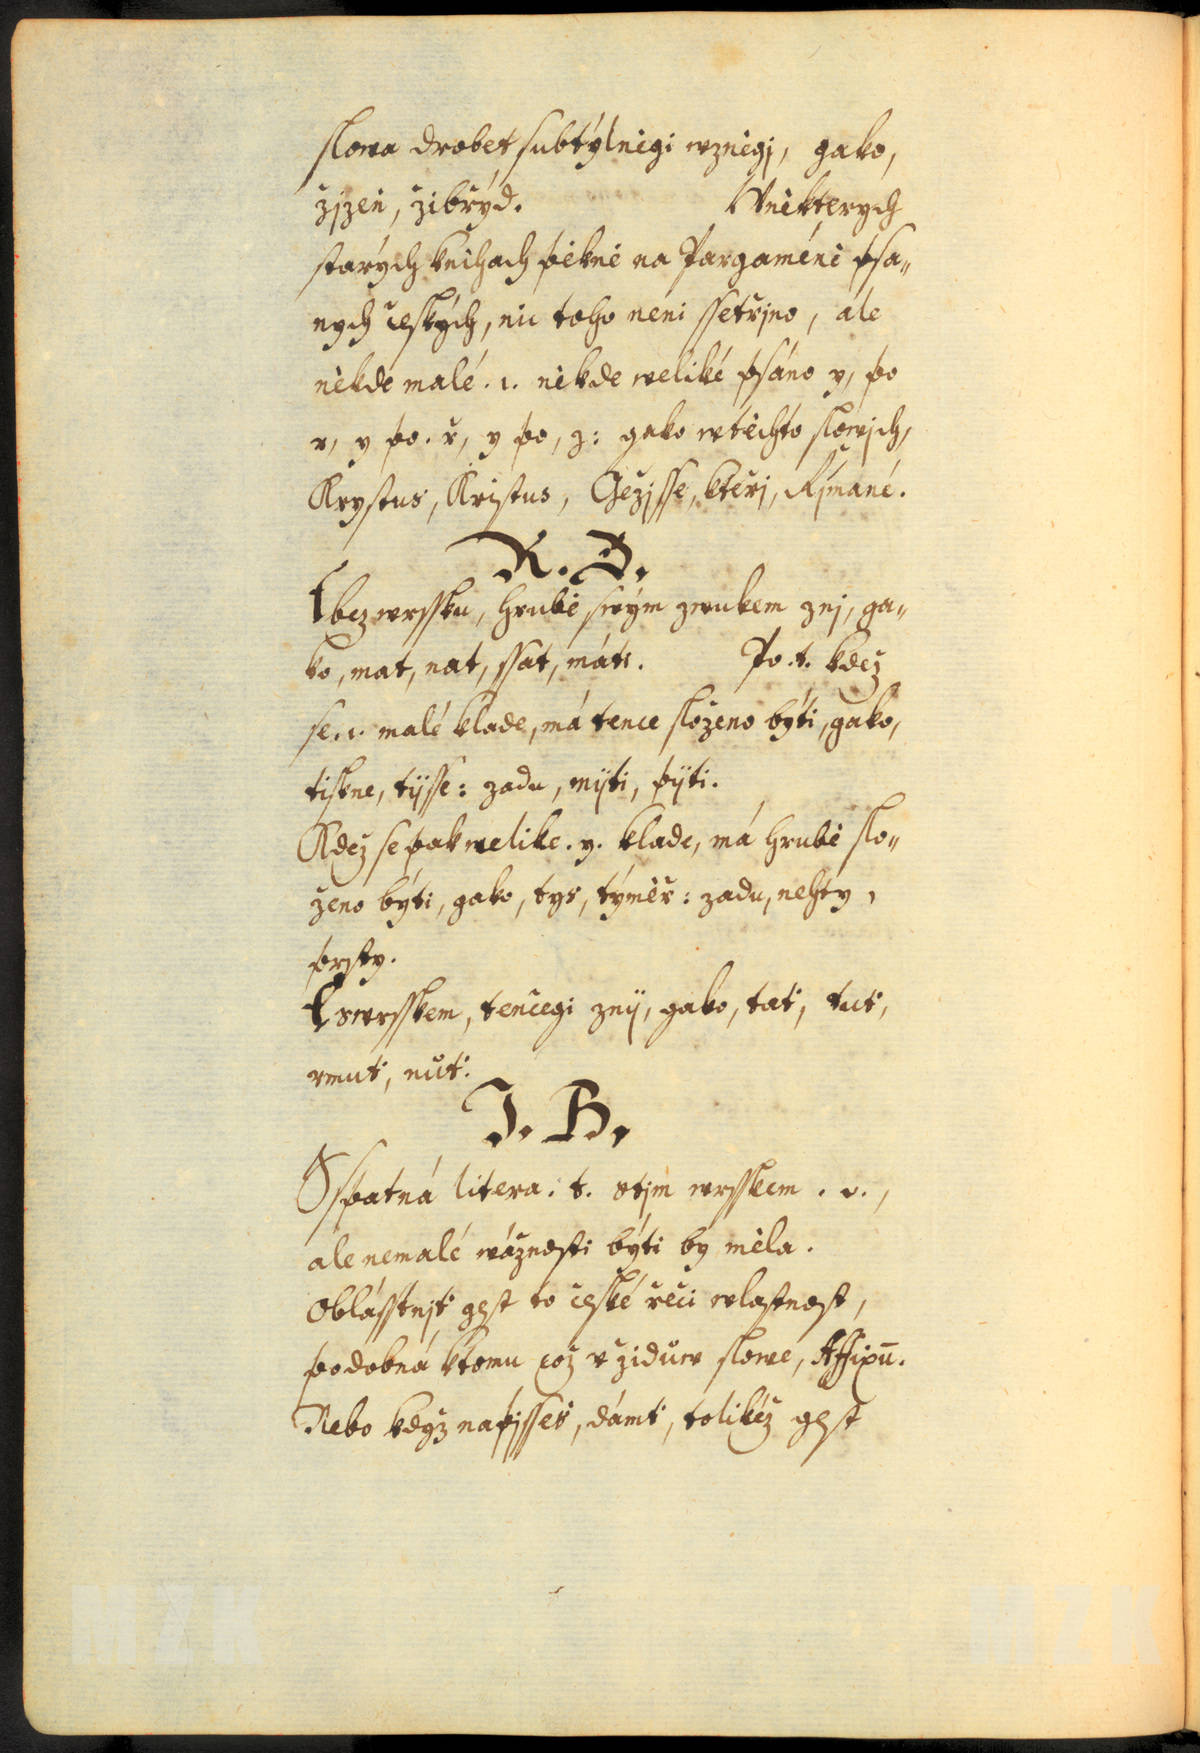 slowa drobet subtýlnìgi wznìgj, gako,
zjzeň, zibřýd. Wnìkterych
starých knihach pìknì na Pargaménì psa„
nych českých, nic toho neni ssetřjno, ale
nìkde malé . i. nìkde weliké psáno y, po
r, y po . ř, y po, z: gako wtìchto slowjch,
Krystus, Kristus, Gežjsse, kteřj, Řjmané.
R. D.
t bez wrssku, hrubì swým zwukem znj, ga„
ko, mat, nat, ssat, máti. Po .t. kdež
se .i. malé klade, má tence složeno býti, gako,
tiskne, tijsse: zadu, mijti, pijti.
Kdež se pak welike . y. klade, má hrubì slo„
ženo býti, gako, tys, týmìř: zadu, nehty,
prsty.
ť swrsskem, tenčegi znij, gako, tať, tuť,
rmuť, nuť.
J. B.
Sspatná litera . t. stjm wrsskem . v.,
ale nemalé wážnosti býti by mìla.
Oblásstnjť gest to české řeči wlastnost,
podobná ktomu což v židůw slowe, Affixū.
Nebo když napjsseš, dámť, tolikéž gest
MZK
MZK